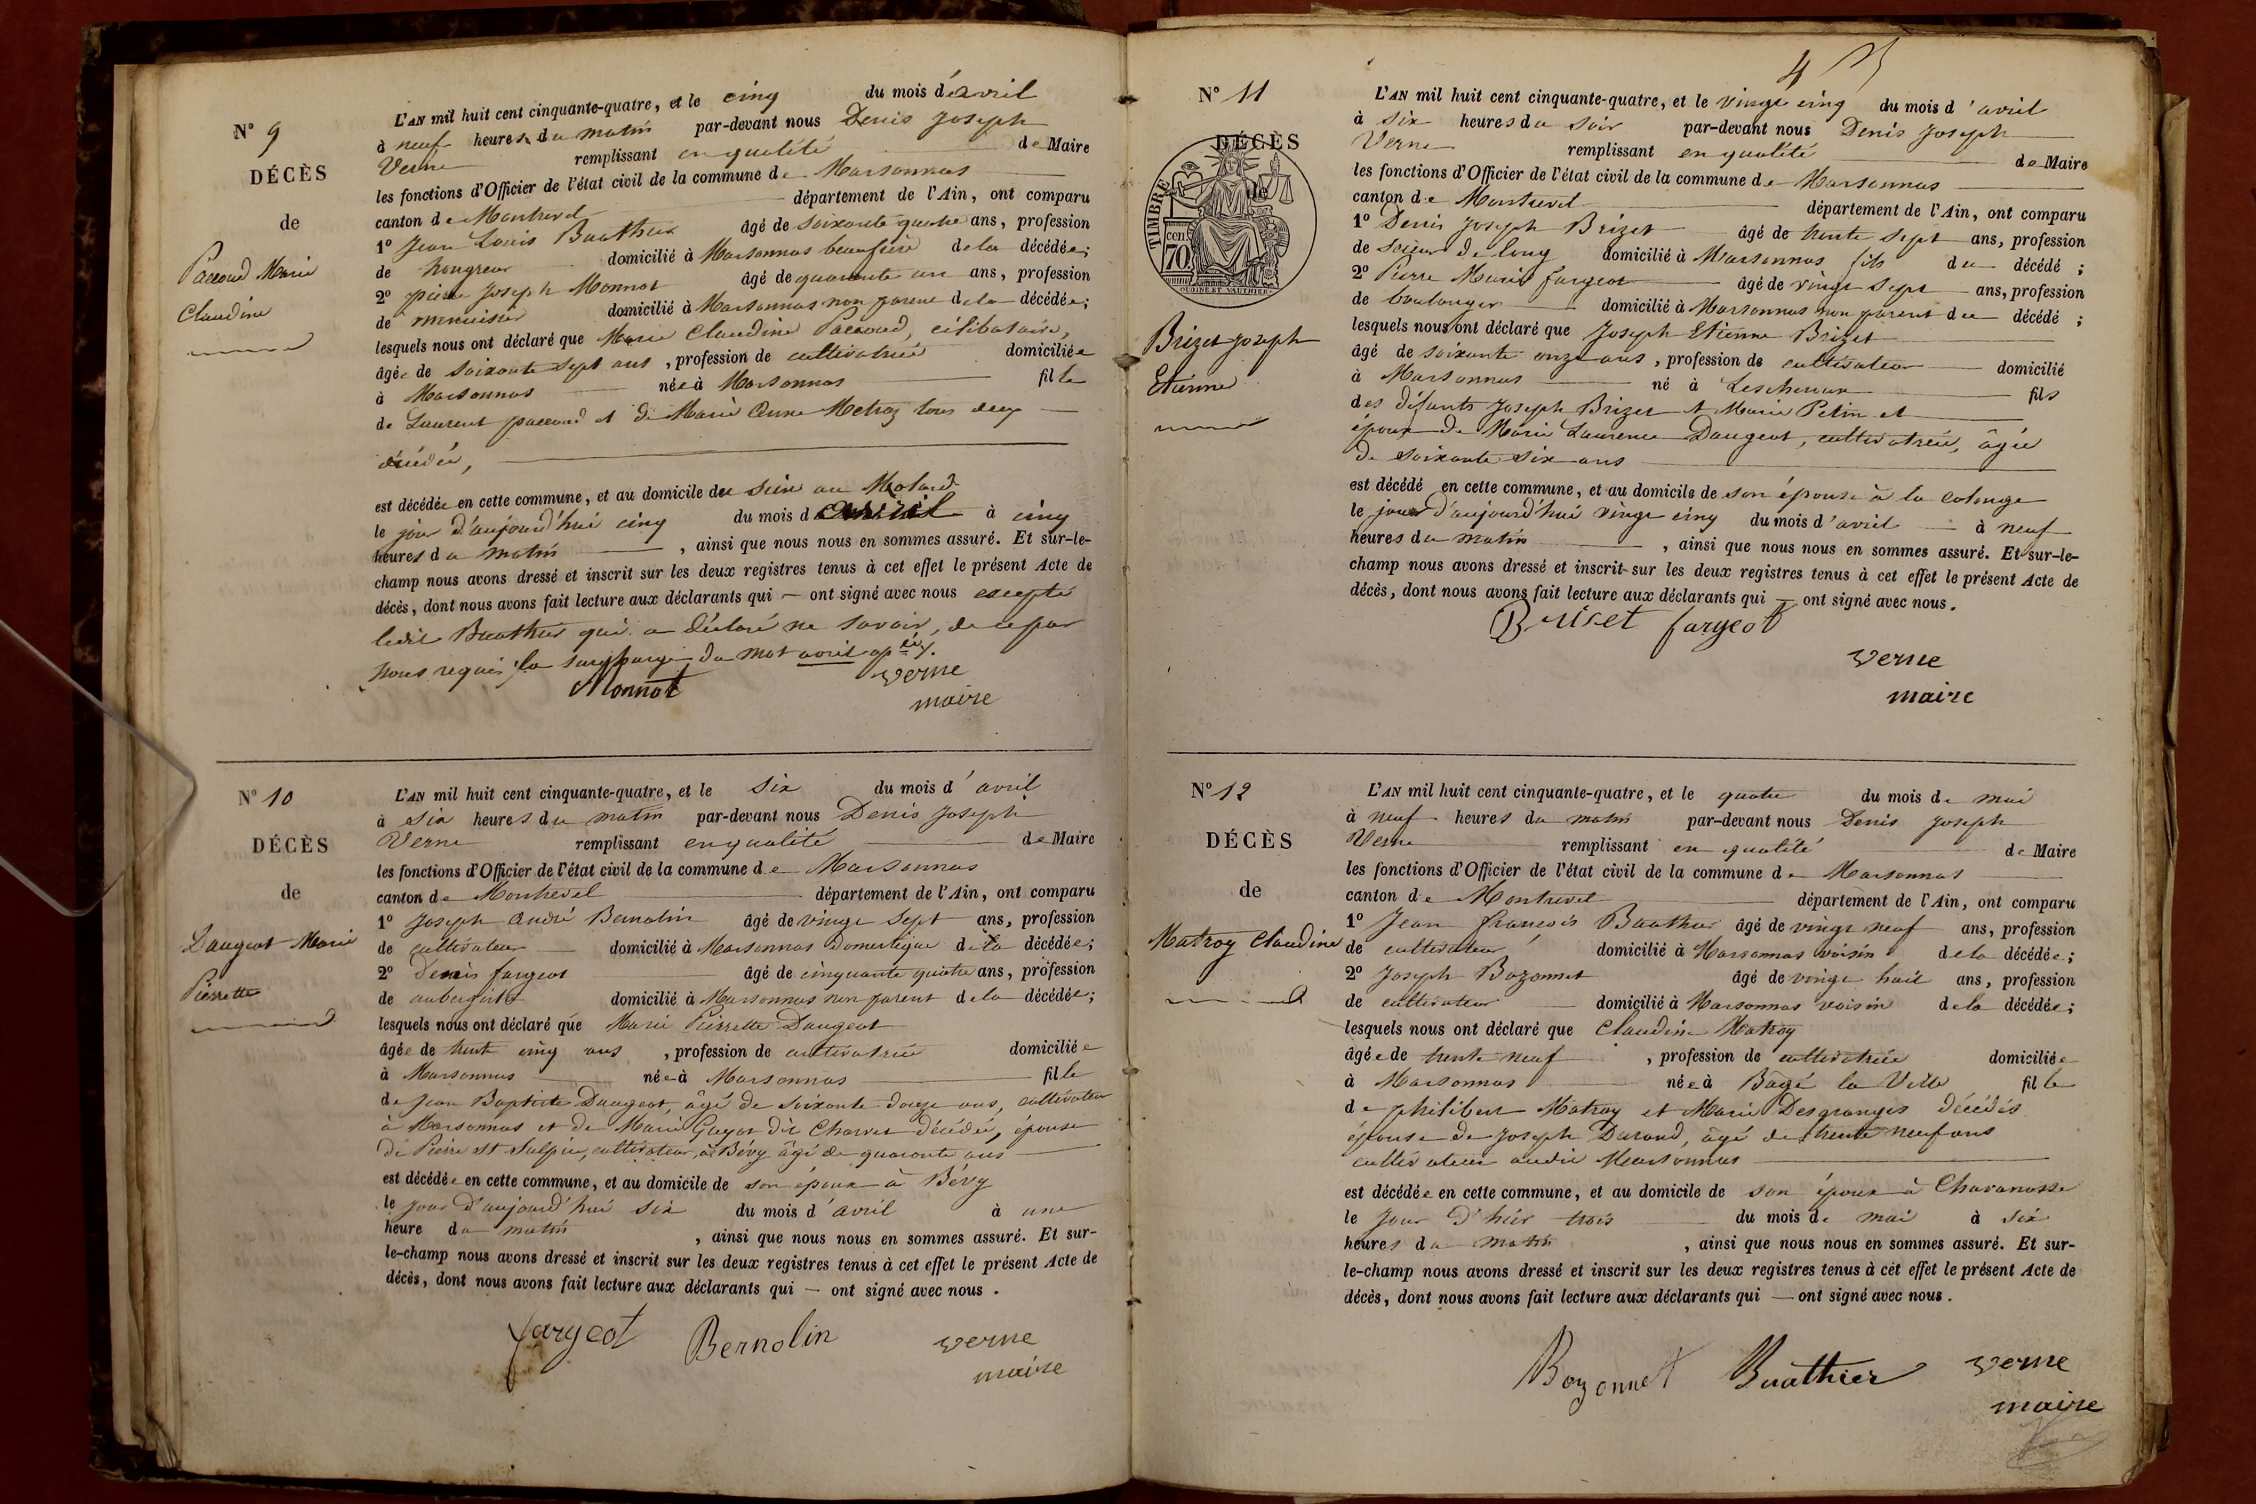 N° 9
DÉCÈS
de
Paccoud Marie
Claudine
L'AN mil huit cent cinquante-quatre, et le cinq du mois d'avril
à neuf heures du matin par-devant nous Denis Joseph
Verne remplissant en qualité de Maire
les fonctions d'Officier de l'état civil de la commune de Marsonnas
canton de Montrevel département de l'Ain, ont comparu
1° Jean Louis Buathier âgé de soixante quatre ans, profession
de hongreur domicilié à Marsonnas beaufrère de la décédée;
2° pierre Joseph Monnot âgé de quarante un ans, profession
de menuisier domicilié à Marsonnas non parent de la décédée;
lesquels nous ont déclaré que Marie Claudine Paccoud, célibataire,
âgée de soixante sept ans, profession de cultivatrice domiciliée
à Marsonnas née à Marsonnas fille
de Laurent paccoud et de Marie Anne Metraz tous deux
décédés,
est décédée en cette commune, et au domicile du sien au Molard
le jour d'aujourd'hui cinq du mois d avril à cinq
heures du matin, ainsi que nous nous en sommes assuré. Et sur-le-
champ nous avons dressé et inscrit sur les deux registres tenus à cet effet le présent Acte de
décès, dont nous avons fait lecture aux déclarants qui — ont signé avec nous excepté
ledit Buathier qui a déclaré ne savoir, de ce par
nous requis la surcharge du mot avril app.ée
Monnot verne
maire
N° 10
DÉCÈS
de
Daugeot Marie
Pierrette
L'AN mil huit cent cinquante-quatre, et le six du mois d'avril
à six heures du matin par-devant nous Denis Joseph
Verne remplissant en qualité de Maire
les fonctions d'Officier de l'état civil de la commune de Marsonnas
canton de Montrevel département de l'Ain, ont comparu
1° Joseph André Bernolin âgé de vingt sept ans, profession
de cultivateur domicilié à Marsonnas domestique de la décédée;
2° Denis fargeot âgé de cinquante quatre ans, profession
de aubergiste domicilié à Marsonnas non parent de la décédée;
lesquels nous ont déclaré que Marie Pierrette Daugeot
âgée de trente cinq ans, profession de cultivatrice domiciliée
à Marsonnas née à Marsonnas fille
de Jean Baptiste Daugeot, âgé de soixante douze ans, cultivateur
à Marsonnas et de Marie Guyot dit Charvet décédée, épouse
de Pierre St Sulpice, cultivateur, à Bévy âgé de quarante ans
est décédée en cette commune, et au domicile de son époux à Bévy
le jour d'aujourd'hui six du mois d'avril à une
heure du matin, ainsi que nous nous en sommes assuré. Et sur-
le-champ nous avons dressé et inscrit sur les deux registres tenus à cet effet le présent Acte de
décès, dont nous avons fait lecture aux déclarants qui — ont signé avec nous.
fargeot Bernolin verne
maire
4
N° 11
DÉCÈS
de
TIMBRE
cen.
70
Brizet Joseph
Etienne
L'AN mil huit cent cinquante-quatre, et le vingt cinq du mois d'avril
à six heures du soir par-devant nous Denis Joseph
Verne remplissant en qualité de Maire
les fonctions d'Officier de l'état civil de la commune de Marsonnas
canton de Montrevel département de l'Ain, ont comparu
1° Denis Joseph Brizet âgé de trente sept ans, profession
de scieur de long domicilié à Marsonnas fils du décédé;
2° Pierre Marie fargeot âgé de vingt sept ans, profession
de boulanger domicilié à Marsonnas non parent du décédé;
lesquels nous ont déclaré que Joseph Etienne Brizet
âgé de soixante onze ans, profession de cultivateur domicilié
à Marsonnas né à Lescheroux fils
des défunts Joseph Brizet et Marie Petin et
époux de Marie Laurence Daugeot, cultivatrice, âgée
de soixante six ans
est décédé en cette commune, et au domicile de son épouse à la Colonge
le jour d'aujourd'hui vingt cinq du mois d'avril à neuf
heures du matin, ainsi que nous nous en sommes assuré. Et sur-le-
champ nous avons dressé et inscrit sur les deux registres tenus à cet effet le présent Acte de
décès, dont nous avons fait lecture aux déclarants qui — ont signé avec nous.
Briset fargeot
verne
maire
N° 12
DÉCÈS
de
Matray Claudine
L'AN mil huit cent cinquante-quatre, et le quatre du mois de mai
à neuf heures du matin par-devant nous Denis Joseph
Verne remplissant en qualité de Maire
les fonctions d'Officier de l'état civil de la commune de Marsonnas
canton de Montrevel département de l'Ain, ont comparu
1° Jean françois Buathier âgé de vingt neuf ans, profession
de cultivateur domicilié à Marsonnas voisin de la décédée;
2° Joseph Bozonnet âgé de vingt huit ans, profession
de cultivateur domicilié à Marsonnas voisin de la décédée;
lesquels nous ont déclaré que Claudine Matray
âgée de trente neuf, profession de cultivatrice domiciliée
à Marsonnas née à Bagé la Ville fille
de philibert Matray et Marie Desgranges décédés
épouse de Joseph Durand, âgé de trente neuf ans
cultivateur audit Marsonnas
est décédée en cette commune, et au domicile de son époux à Chavanosse
le jour d'hier trois du mois de mai à six
heures du matin, ainsi que nous nous en sommes assuré. Et sur-
le-champ nous avons dressé et inscrit sur les deux registres tenus à cet effet le présent Acte de
décès, dont nous avons fait lecture aux déclarants qui — ont signé avec nous.
Bozonnet Buathier verne
maire